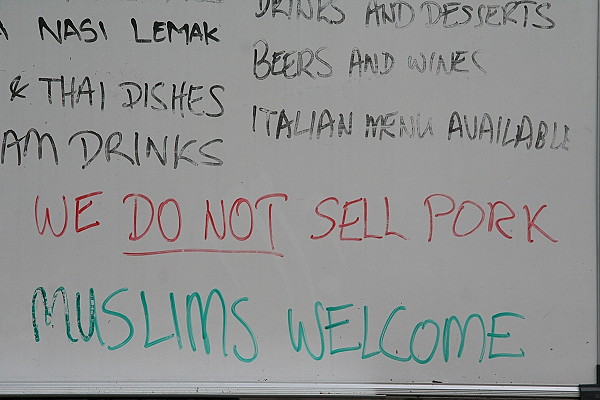 NASI LEMAK
& THAI DISHES
AM DRINKS
DRINKS AND DESSERTS
BEERS AND WINES
ITALIAN MENU AVAILABLE
WE DO NOT SELL PORK
MUSLIMS WELCOME